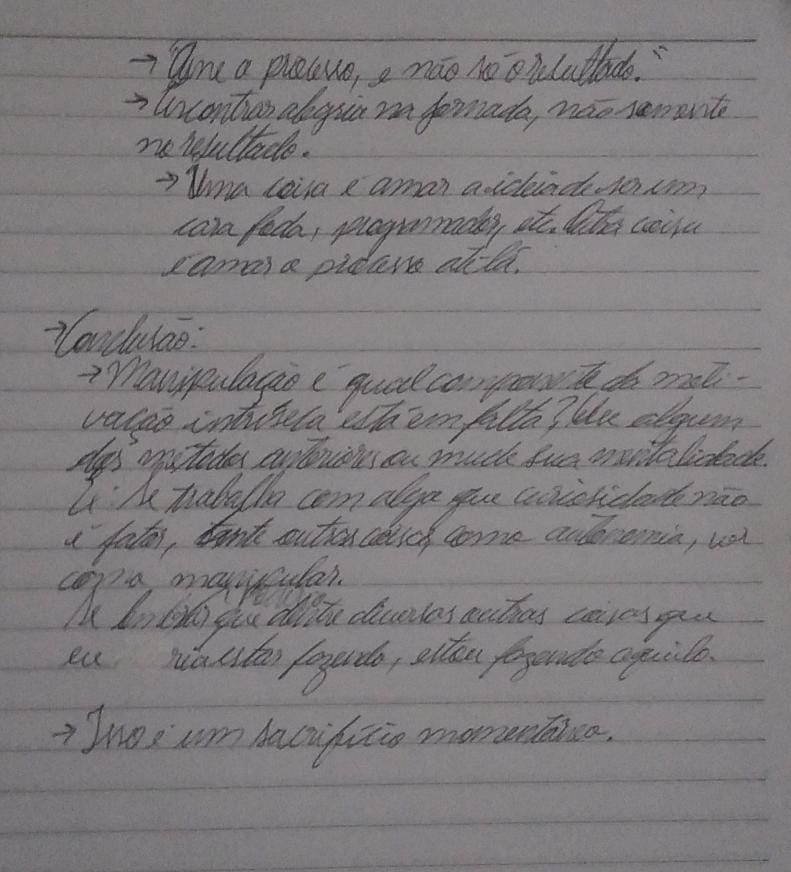 → "Ame o processo, e não só o resultado."
→ Encontrar alegria na jornada, não somente
no resultado.
→ Uma coisa é amar a ideia de ser um
cara foda, programador, etc. Outra coisa
é amar o processo até lá.
→ Conclusão:
→ Manipulação é qual componente da moti-
vação intríseca está em falta? Use algum
dos métodos anteriores ou mude sua mentalidade.
Se trabalha com algo que curiosidade não
é fator, tente outras coisas, como autonomia, ver
como manipular.
Se lembrar que dentre diversas outras coisas que
eu estar fazendo, estou fazendo aquilo.
→ Isso é um sacrifício momentâneo.